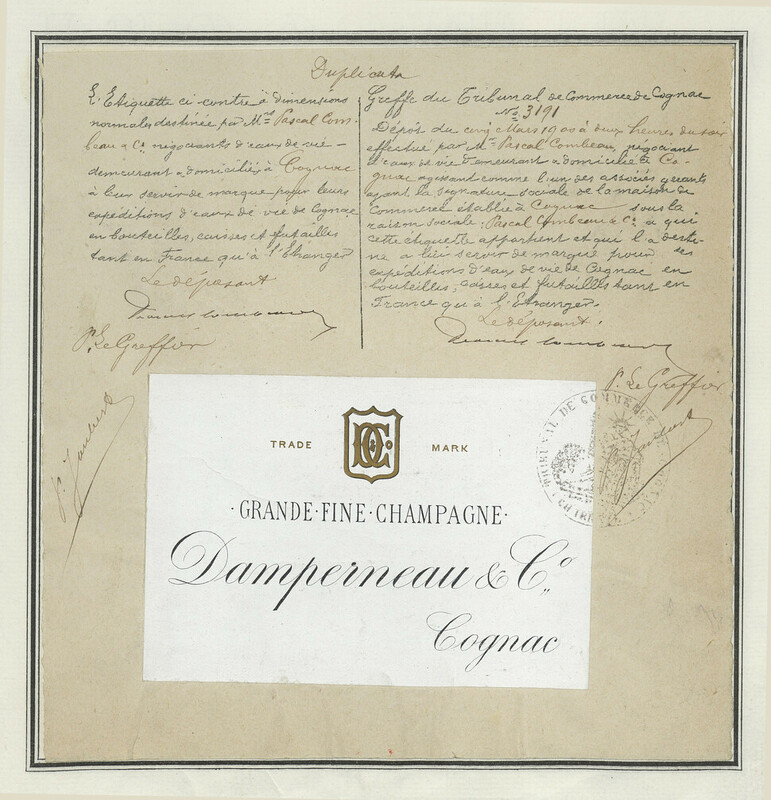 Duplicata
L'Etiquette ci-contre à dimensions
normales destinée par Mrs Pascal Com-
beau & Co négociants d'eaux de vie –
demeurant & domiciliés à Cognac
à leur servir de marque pour leurs
expéditions d'eaux de vie de Cognac
en bouteilles, caisses et futailles
tant en France qu'à l'Etranger
Le déposant
P. Le Greffier
P. Jaubert
Greffe du Tribunal de Commerce de Cognac
No 3191
Dépôt du cinq Mars 1900 à deux heures du soir
effectué par Mr Pascal Combeau, négociant
d'eaux de vie demeurant & domicilié à Co-
gnac agissant comme l'un des associés gérants
ayant la signature sociale de la maison de
Commerce établie à Cognac sous la
raison sociale: Pascal Combeau & Co à qui
cette étiquette appartient et qui l'a desti-
né à lui servir de marque pour ses
expéditions d'eaux de vie de Cognac en
bouteilles, caisses et futailles tant en
France qu'à l'Etranger.
Le déposant.
P. Le Greffier
Jaubert
TRIBUNAL DE COMMERCE
TRADE MARK
D&Co
·GRANDE·FINE·CHAMPAGNE·
Damperneau & Co
Cognac